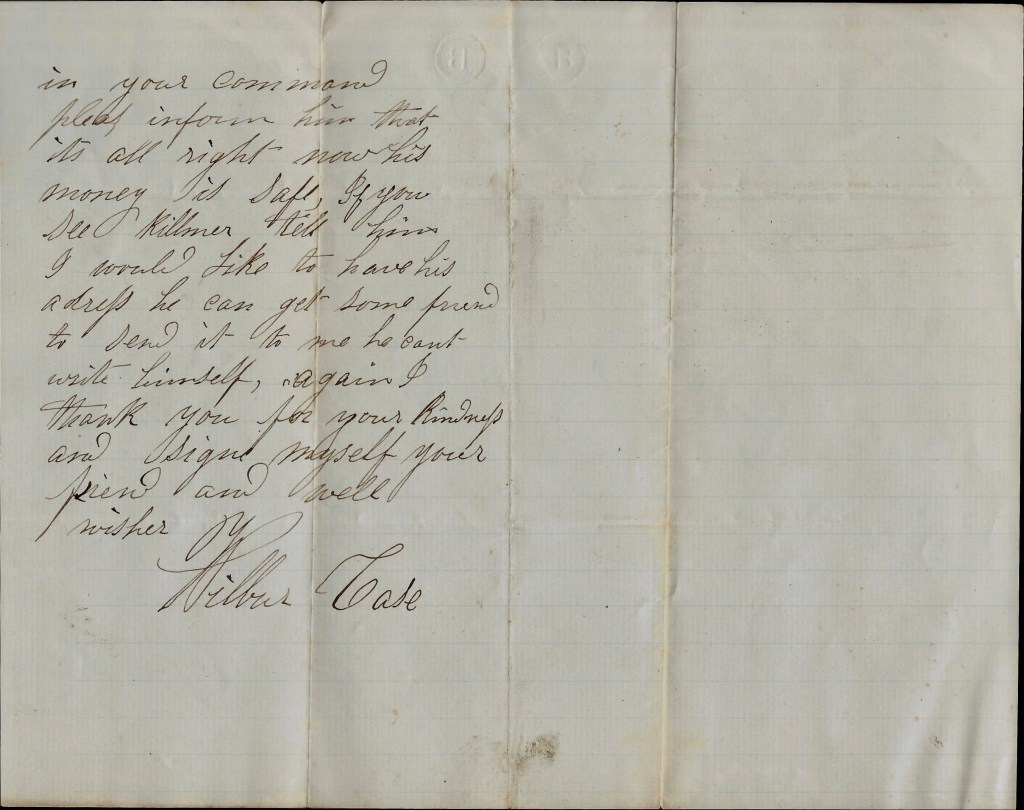 in your command
pleas inform him that
its all right now his
money is safe, If you
see Killmer tell him
I would like to have his
adress he can get some friend
to send it to me he cant
write himself, again I
thank you for your Kindness
and signe myself your
friend and well
wisher
Wilbur Case